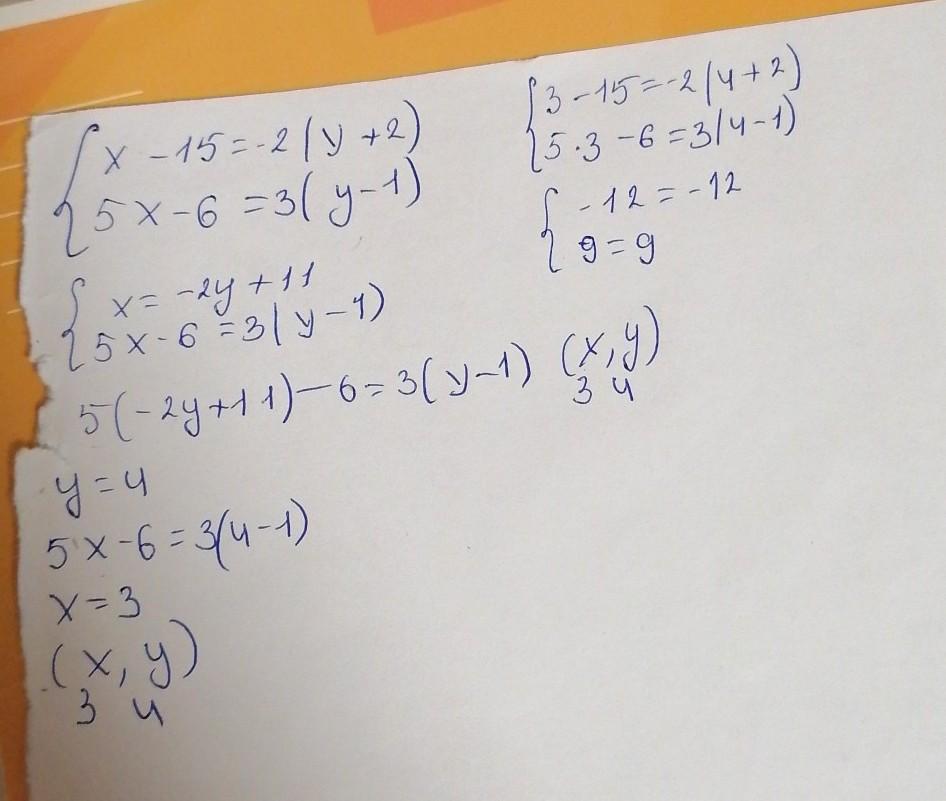 x - 15 = -2(y + 2)
5x - 6 = 3(y - 1)
x = -2y + 11
5x - 6 = 3(y - 1)
5(-2y + 11) - 6 = 3(y - 1)
y = 4
5x - 6 = 3(4 - 1)
x = 3
(x, y)
3 4
3 - 15 = -2(4 + 2)
5 · 3 - 6 = 3(4 - 1)
-12 = -12
9 = 9
(x, y)
3 4